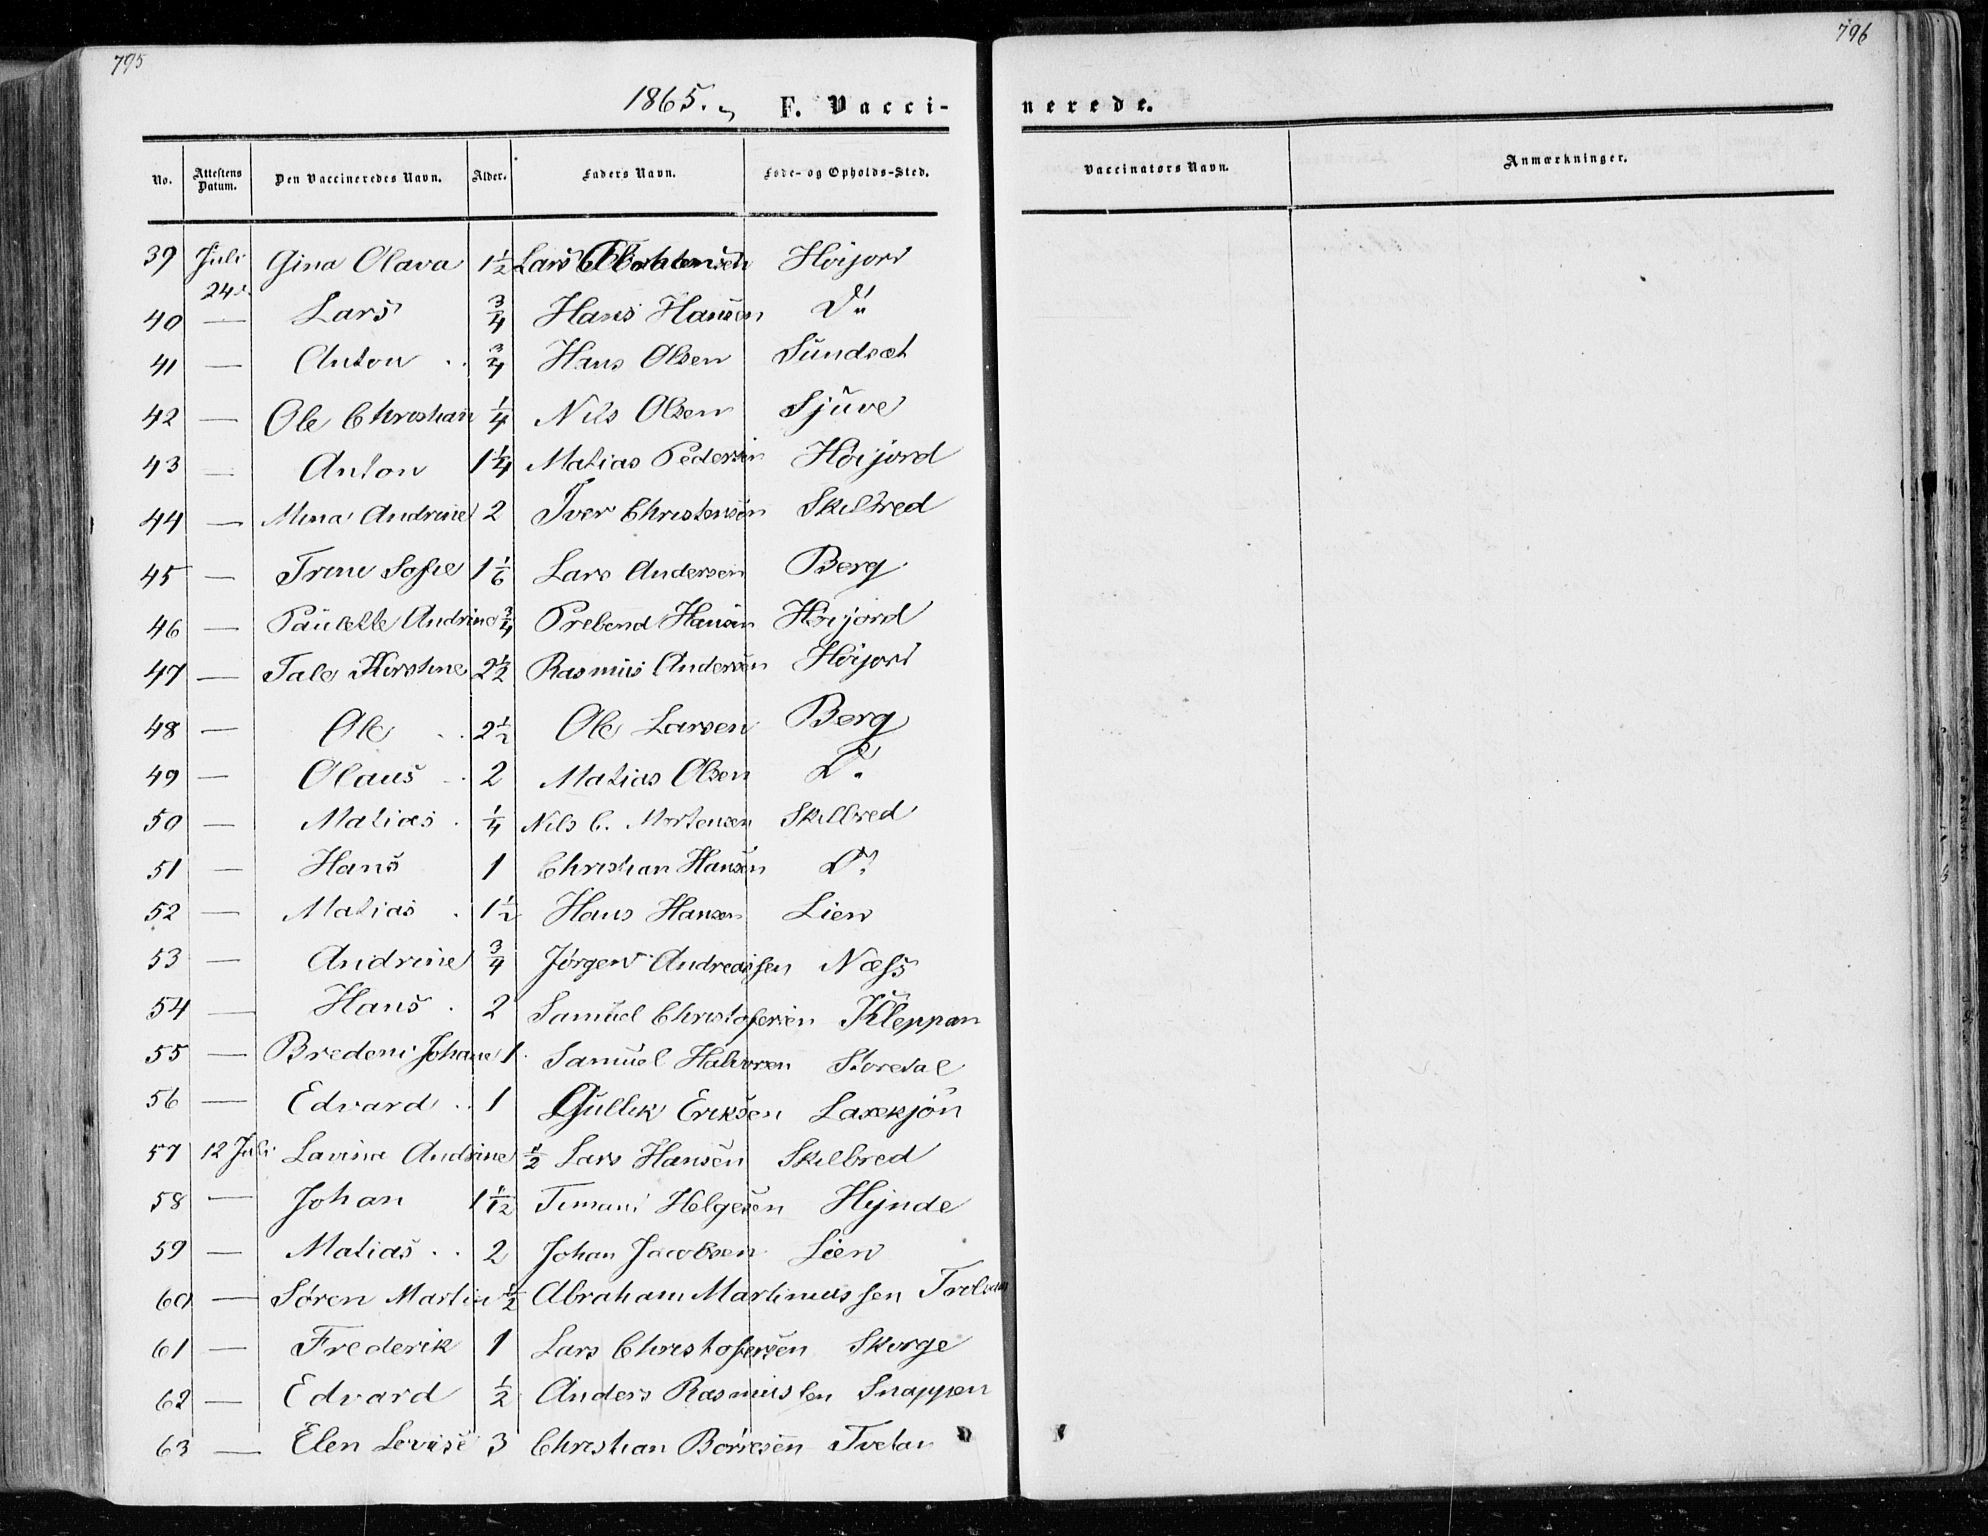 795
796
1865. F. Vacci-
nerede.
No. Attestens Datum. Den Vaccineredes Navn. Alder. Faders Navn. Føde- og Opholds-Sted. Vaccinators Navn. Anmærkninger.
39 Juli 24de Gina Olava 1 1/2 Lars Høijord
40 — Lars 3/4 Hans Hansen Do
41 — Anton 3/4 Hans Olsen Sundset
42 — Ole Christian 1/4 Nils Olsen Sjüve
43 — Anton 1 1/4 Matias Pedersen Høijord
44 — Mina Andrine 2 Iver Christensen Skilbred
45 — Trine Sofie 1 1/6 Lars Andersen Berg
46 — Paulette Andrine 3/4 Prebend Hansen Høijord
47 — Tale Kirstine 2 1/2 Rasmus Andersen Høijord
48 — Ole 2 1/2 Ole Larsen Berg
49 — Olaus 2 Matias Olsen Do
50 — Matias 1/4 Nils C. Mortensen Skilbred
51 — Hans 1 Christian Hansen Do
52 — Matias 1 1/2 Hans Hansen Lien
53 — Andrine 3/4 Jørgen Andreassen Næss
54 — Hans 2 Samuel Christofersen Kleppan
55 — Bredeni Johane 1 Samuel Halvorsen Storedal
56 — Edvard 1 Gullik Eriksen Laxekjön
57 12 Juli Lavina Andrine 1/2 Lars Hansen Skilbred
58 — Johan 1 1/12 Timani Helgesen Hynde
59 — Matias 2 Johan Jacobsen Lien
60 — Søren Martin 1/2 Abraham Martinussen
61 — Frederik 1 Lars Christofersen Skorge
62 — Edvard 1/2 Anders Rasmussen Snappen
63 — Elen Lovise 3 Christian Borresen Tvetan